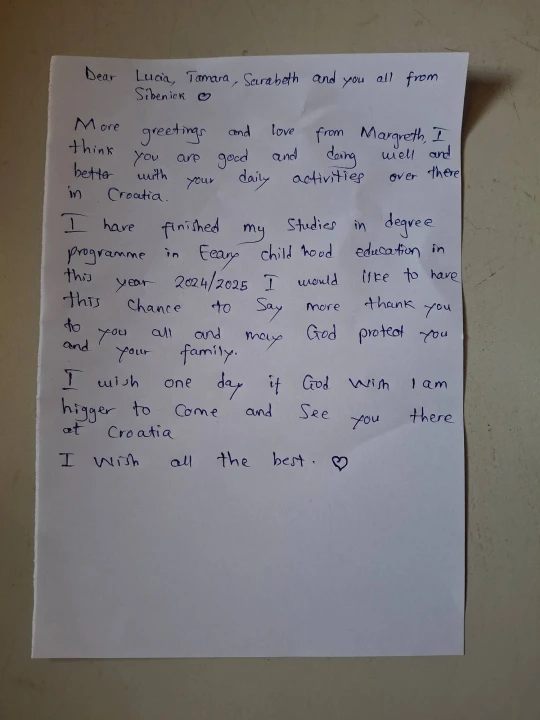 Dear Lucia, Tamara, Sarabeth and you all from
Sibenick ♡
More greetings and love from Margreth, I
think you are good and doing well and
better with your daily activities over there
in Croatia.
I have finished my Studies in degree
programme in Eeary child hood education in
this year 2024/2025 I would like to have
this chance to Say more thank you
to you all and may God protect you
and your family.
I wish one day if God wish I am
higger to Come and See you there
at Croatia
I Wish all the best. ♡